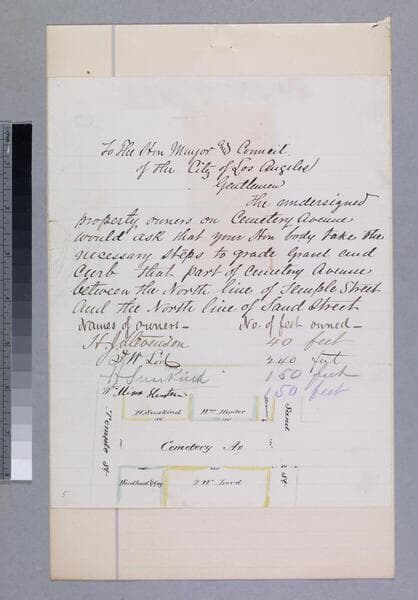 To The Hon Mayor and Council
of the City of Los Angeles
Gentlemen
The undersigned
property owners on Cemetery Avenue
would ask that your Hon body take the
necessary steps to grade Gravel and
Curb that part of Cemetery Avenue
between the North line of Temple Street
and the North line of Sand Street
Names of owners— No. of feet owned—
H J Stevenson 40 feet
240 feet
H Suskind 150 feet
Hunter 150 feet
H. Suskind Wm Hunter
Temple St Cemetery Av Sand St
J. W. Lord
5